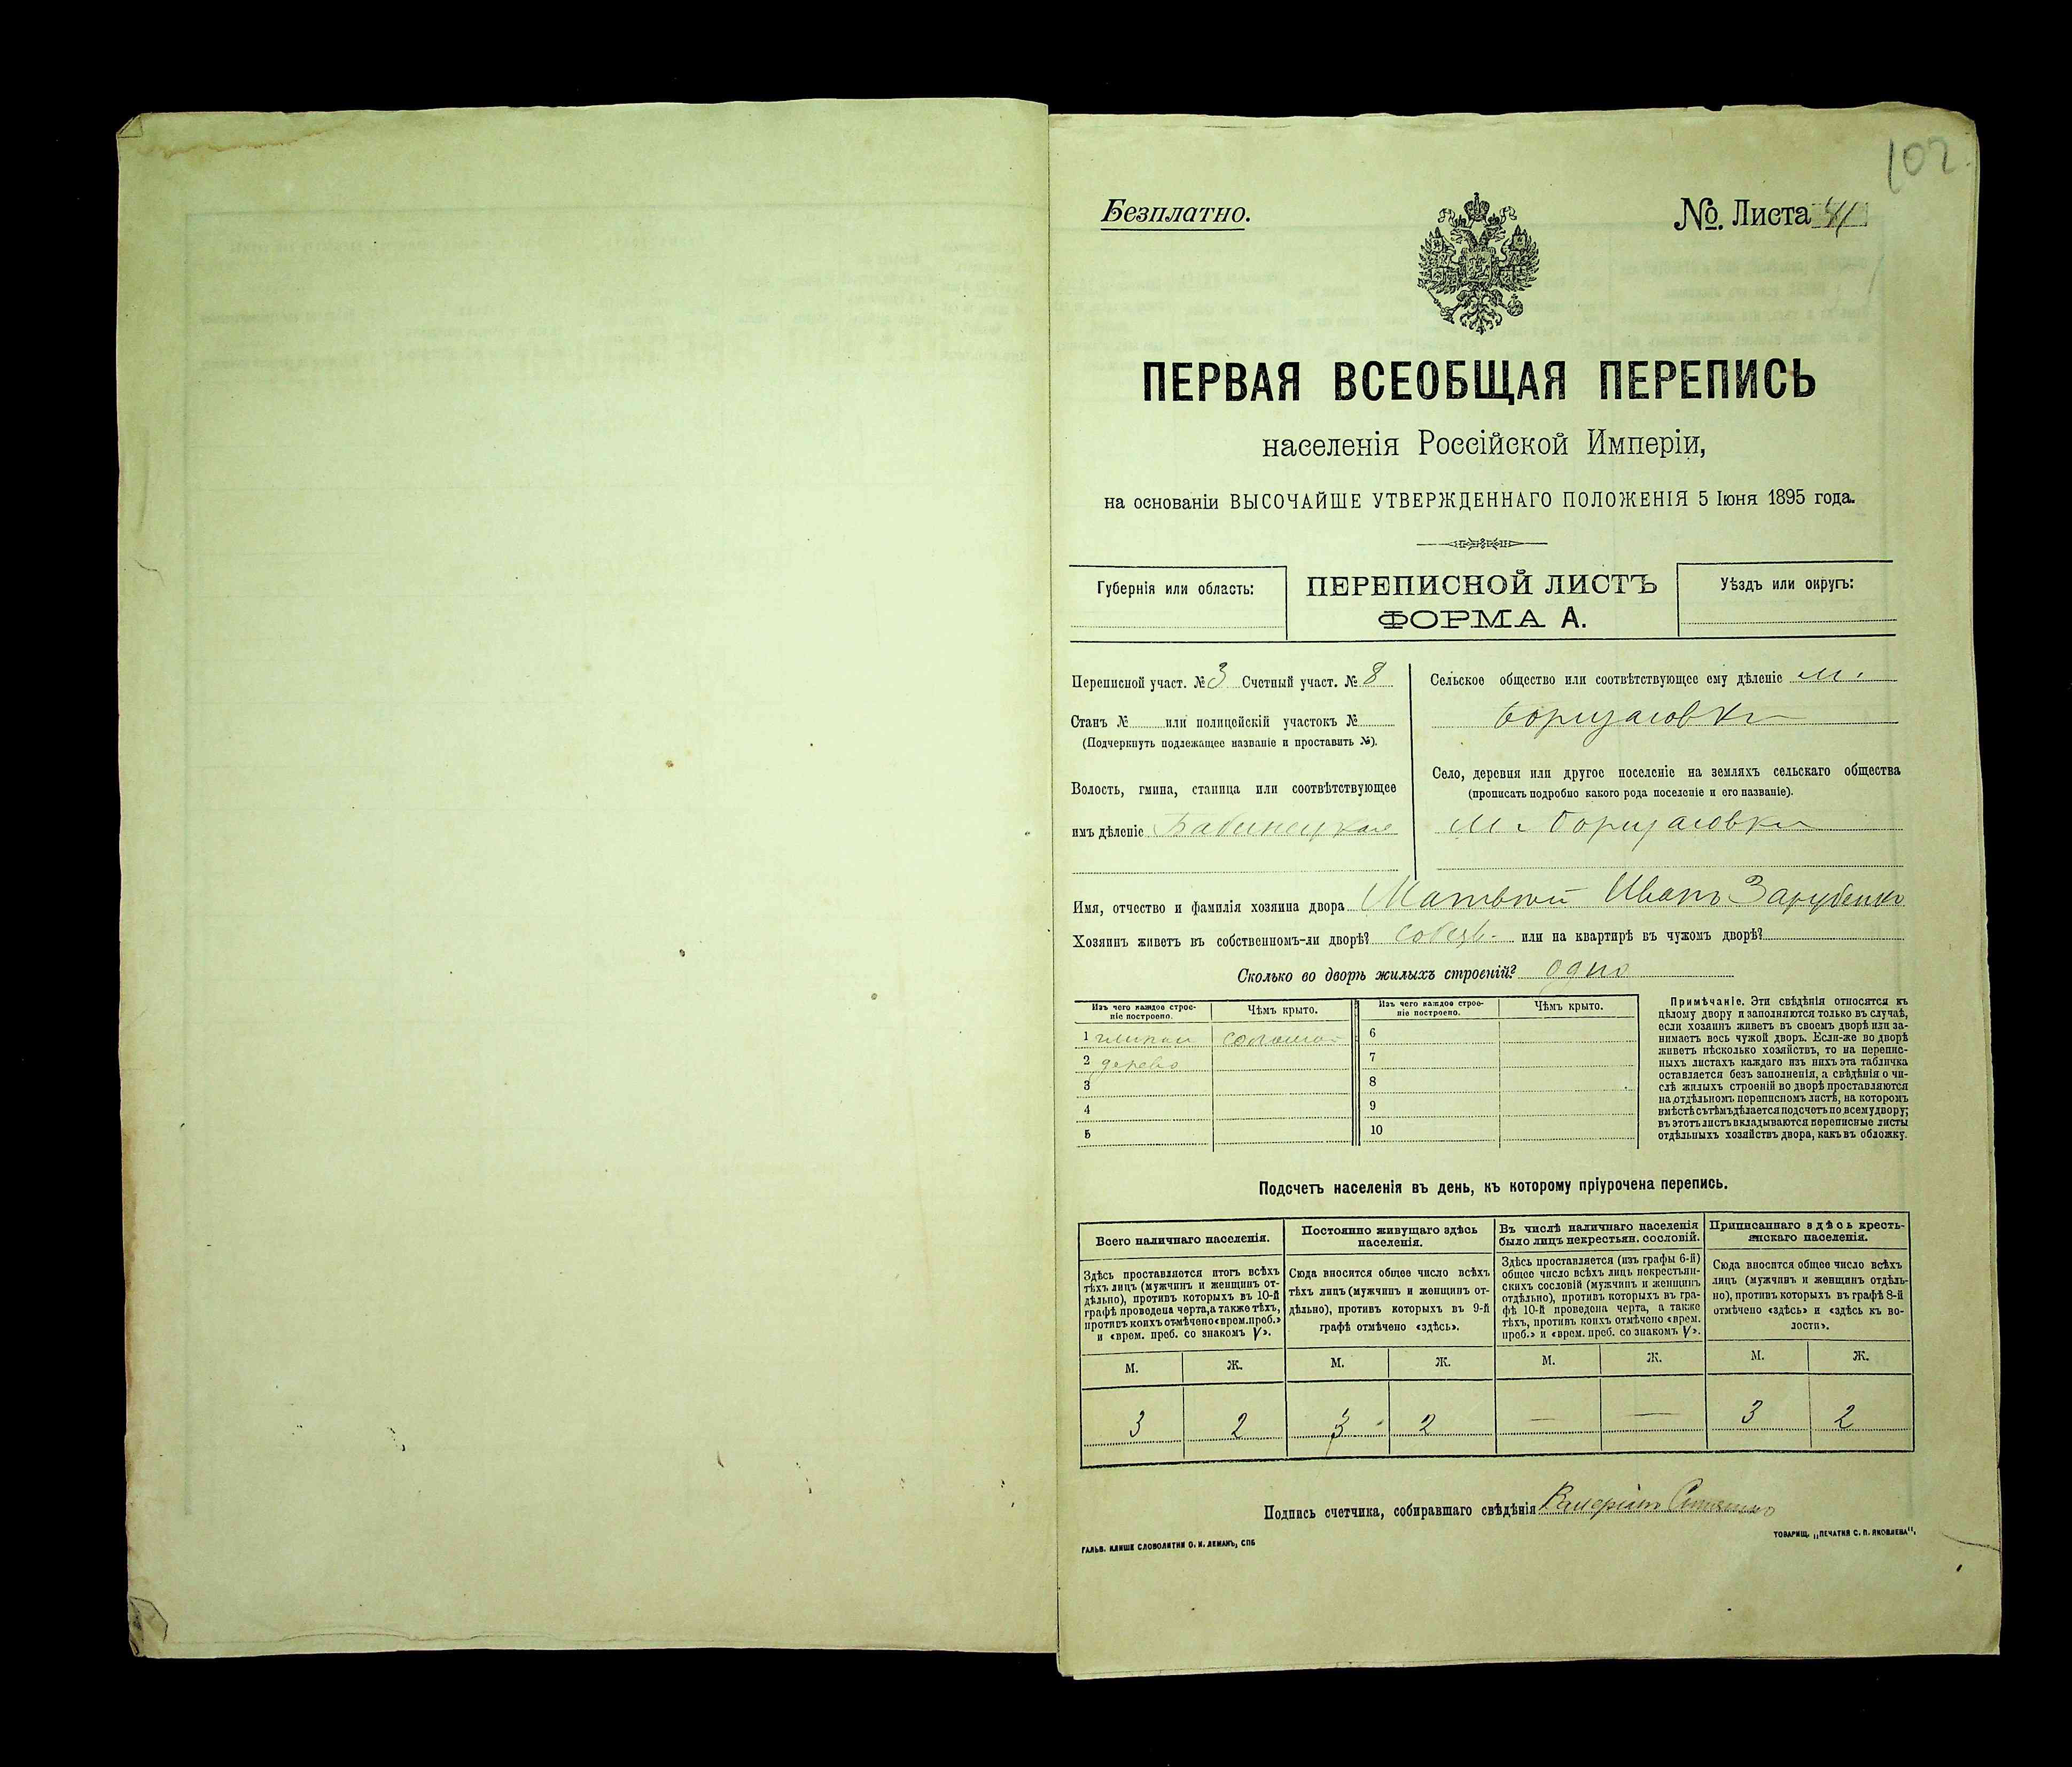 102.
Безплатно.
№. Листа 41
ПЕРВАЯ ВСЕОБЩАЯ ПЕРЕПИСЬ
населенія Россійской Имперіи,
на основаніи ВЫСОЧАЙШЕ УТВЕРЖДЕННАГО ПОЛОЖЕНІЯ 5 Іюня 1895 года.
Губернія или область:
ПЕРЕПИСНОЙ ЛИСТЪ
ФОРМА А.
Уѣздъ или округъ:
Переписной участ. № 3 Счетный участ. № 8
Станъ № или полицейскій участокъ №
(Подчеркнуть подлежащее названіе и проставить №).
Волость, гмина, станица или соотвѣтствующее
имъ дѣленіе Бабинецкая
Сельское общество или соотвѣтствующее ему дѣленіе м.
Борщаговка
Село, деревня или другое поселеніе на земляхъ сельскаго общества
(прописать подробно какого рода поселеніе и его названіе).
м. Борщаговка
Имя, отчество и фамилія хозяина двора Матвѣй Иванъ Зарубенко
Хозяинъ живетъ въ собственномъ-ли дворѣ? собств. или на квартирѣ въ чужомъ дворѣ?
Сколько во дворѣ жилыхъ строеній? одно
Изъ чего каждое строеніе построено.
Чѣмъ крыто.
Изъ чего каждое строеніе построено.
Чѣмъ крыто.
1 глина
6
2 дерево
7
3
8
4
9
5
10
Примѣчаніе. Эти свѣдѣнія относятся къ
цѣлому двору и заполняются только въ случаѣ,
если хозяинъ живетъ въ своемъ дворѣ или за-
нимаетъ весь чужой дворъ. Если-же во дворѣ
живетъ нѣсколько хозяйствъ, то на перепис-
ныхъ листахъ каждаго изъ нихъ эта табличка
оставляется безъ заполненія, а свѣдѣнія о чи-
слѣ жилыхъ строеній во дворѣ проставляются
на отдѣльномъ переписномъ листѣ, на которомъ
вмѣстѣ съ тѣмъ дѣлается подсчетъ по всему двору;
въ этотъ листъ вкладываются переписные листы
отдѣльныхъ хозяйствъ двора, какъ въ обложку.
Подсчетъ населенія въ день, къ которому пріурочена перепись.
Всего наличнаго населенія.
Здѣсь проставляется итогъ всѣхъ
тѣхъ лицъ (мужчинъ и женщинъ от-
дѣльно), противъ которыхъ въ 10-й
графѣ проведена черта, а также тѣхъ,
противъ коихъ отмѣчено «врем. преб.»
и «врем. преб. со знакомъ V».
Постоянно живущаго здѣсь
населенія.
Сюда вносится общее число всѣхъ
тѣхъ лицъ (мужчинъ и женщинъ от-
дѣльно), противъ которыхъ въ 9-й
графѣ отмѣчено «здѣсь».
Въ числѣ наличнаго населенія
было лицъ некрестьян. сословій.
Здѣсь проставляется (изъ графы 6-й)
общее число всѣхъ лицъ некрестьян-
скихъ сословій (мужчинъ и женщинъ
отдѣльно), противъ которыхъ въ гра-
фѣ 10-й проведена черта, а также
тѣхъ, противъ коихъ отмѣчено «врем.
преб.» и «врем. преб. со знакомъ V».
Приписаннаго здѣсь кресть-
янскаго населенія.
Сюда вносится общее число всѣхъ
лицъ (мужчинъ и женщинъ отдѣль-
но), противъ которыхъ въ графѣ 8-й
отмѣчено «здѣсь» и «здѣсь къ во-
лости».
М. Ж. М. Ж. М. Ж. М. Ж.
3 2 3 2 — — 3 2
Подпись счетчика, собиравшаго свѣдѣнія Валеріанъ
ГАЛЬВ. КЛИШЕ СЛОВОЛИТНИ О. И. ЛЕМАНЪ, СПБ
ТОВАРИЩ. „ПЕЧАТНЯ С. П. ЯКОВЛЕВА".